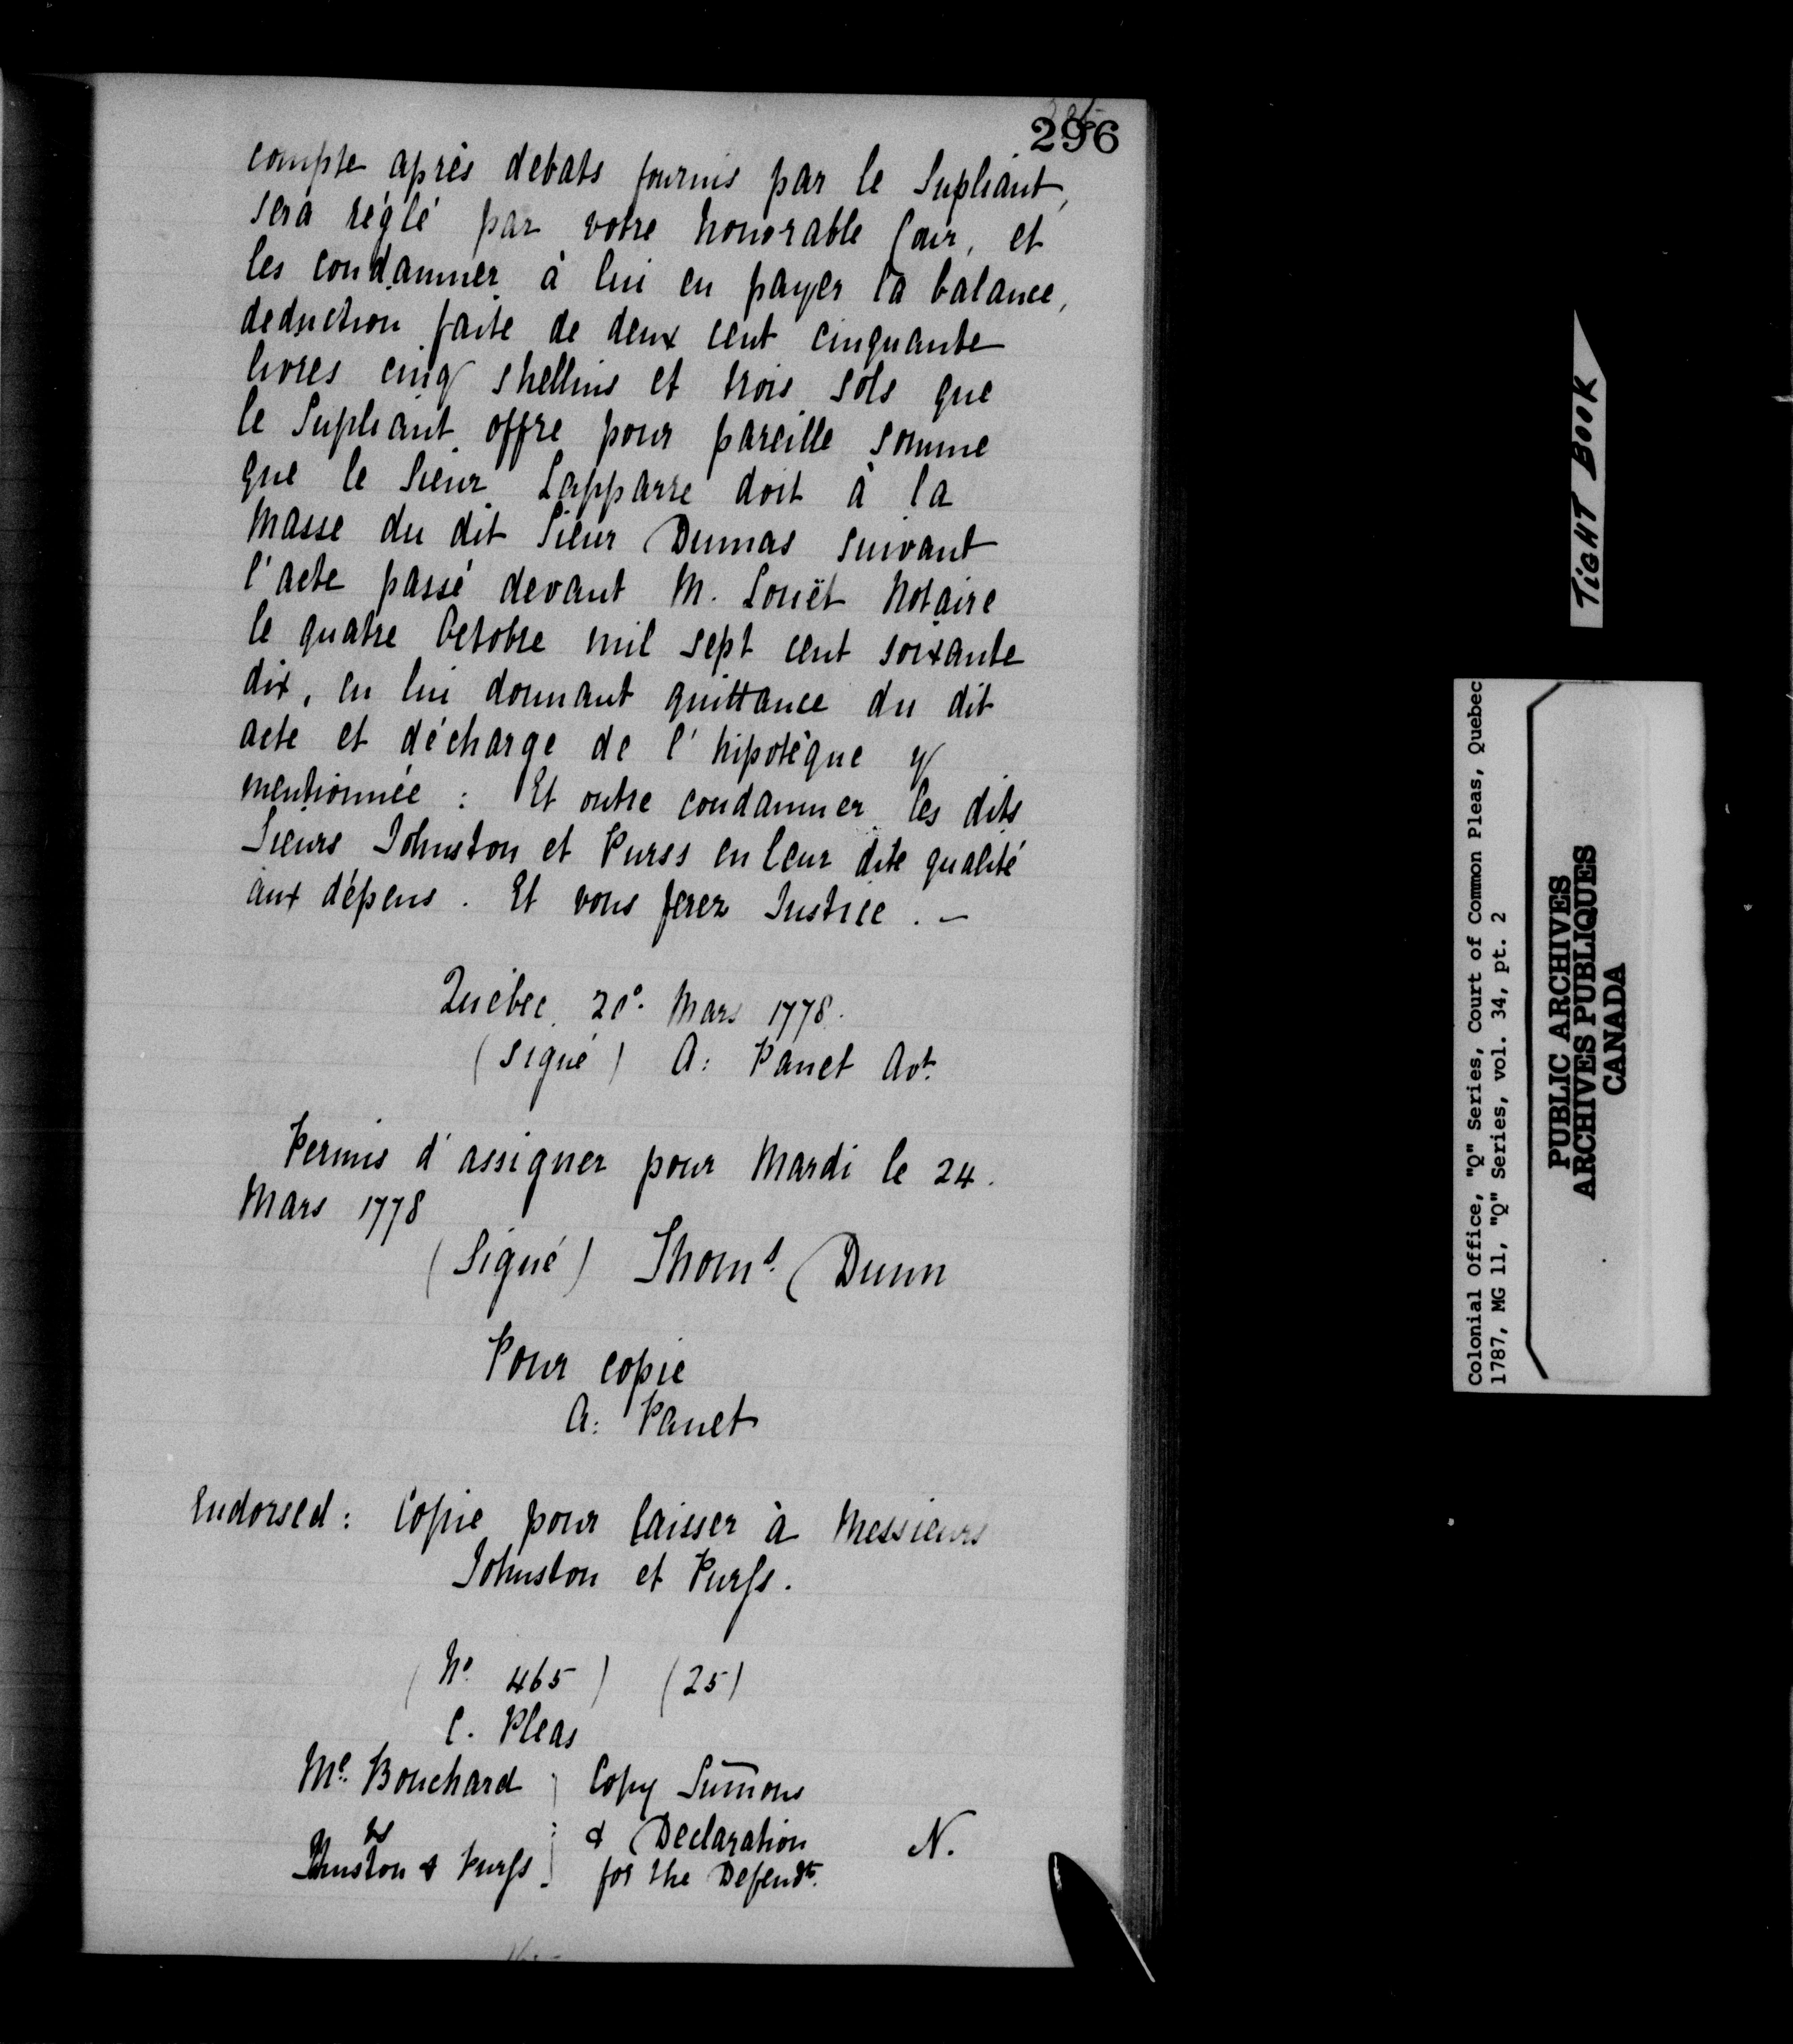 296
compte après debats fournis par le Supliant,
sera réglé par votre honorable Cour, et
les condamner à lui en payer la balance,
deduction faite de deux cent cinquante
livres cinq shellins et trois sols que
le Supliant offre pour pareille somme
que le Sieur Lapparre doit à la
Masse du dit Sieur Dumas suivant
l'acte passé devant M. Louët Notaire
le quatre Octobre mil sept cent soixante
dix, en lui donnant quittance du dit
acte et décharge de l'hipotèque y
mentionnée : Et outre condamner les dits
Sieurs Johnston et Purss en leur dite qualité
aux dépens. Et vous ferez Justice. -
Québec, 20°. Mars 1778.
(signé) A: Panet Avt.
Permis d'assigner pour Mardi le 24.
Mars 1778
(Signé) Thoms. Dunn
Pour copie
A: Panet
Endorsed: Copie pour laisser à Messieurs
Johnston et Purss.
(No. 465) (25)
C. Pleas
Me. Bouchard
vs
Johnston & Purss
Copy Sum̄ons
& Declaration
for the Defendts.
N.
TIGHT BOOK
Colonial Office, "Q" Series, Court of Common Pleas, Quebec
1787, MG 11, "Q" Series, vol. 34, pt. 2
PUBLIC ARCHIVES
ARCHIVES PUBLIQUES
CANADA